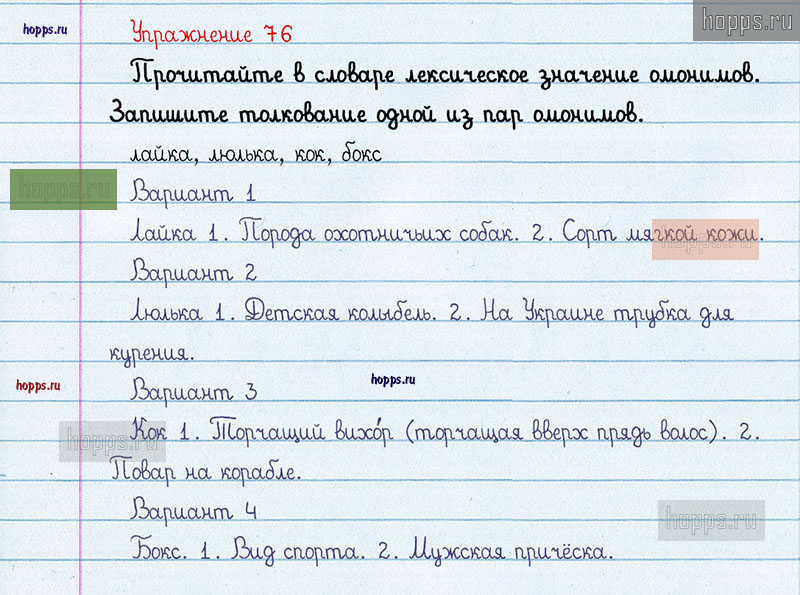 hopps.ru
hopps.ru
Упражнение 76
Прочитайте в словаре лексическое значение омонимов.
Запишите толкование одной из пар омонимов.
лайка, люлька, кок, бокс
hopps.ru
Вариант 1
Лайка 1. Порода охотничьих собак. 2. Сорт мягкой кожи.
hopps.ru
Вариант 2
Люлька 1. Детская колыбель. 2. На Украине трубка для
курения.
hopps.ru
hopps.ru
Вариант 3
Кок 1. Торчащий вихо́р (торчащая вверх прядь волос). 2.
hopps.ru
Повар на корабле.
Вариант 4
hopps.ru
Бокс. 1. Вид спорта. 2. Мужская причёска.